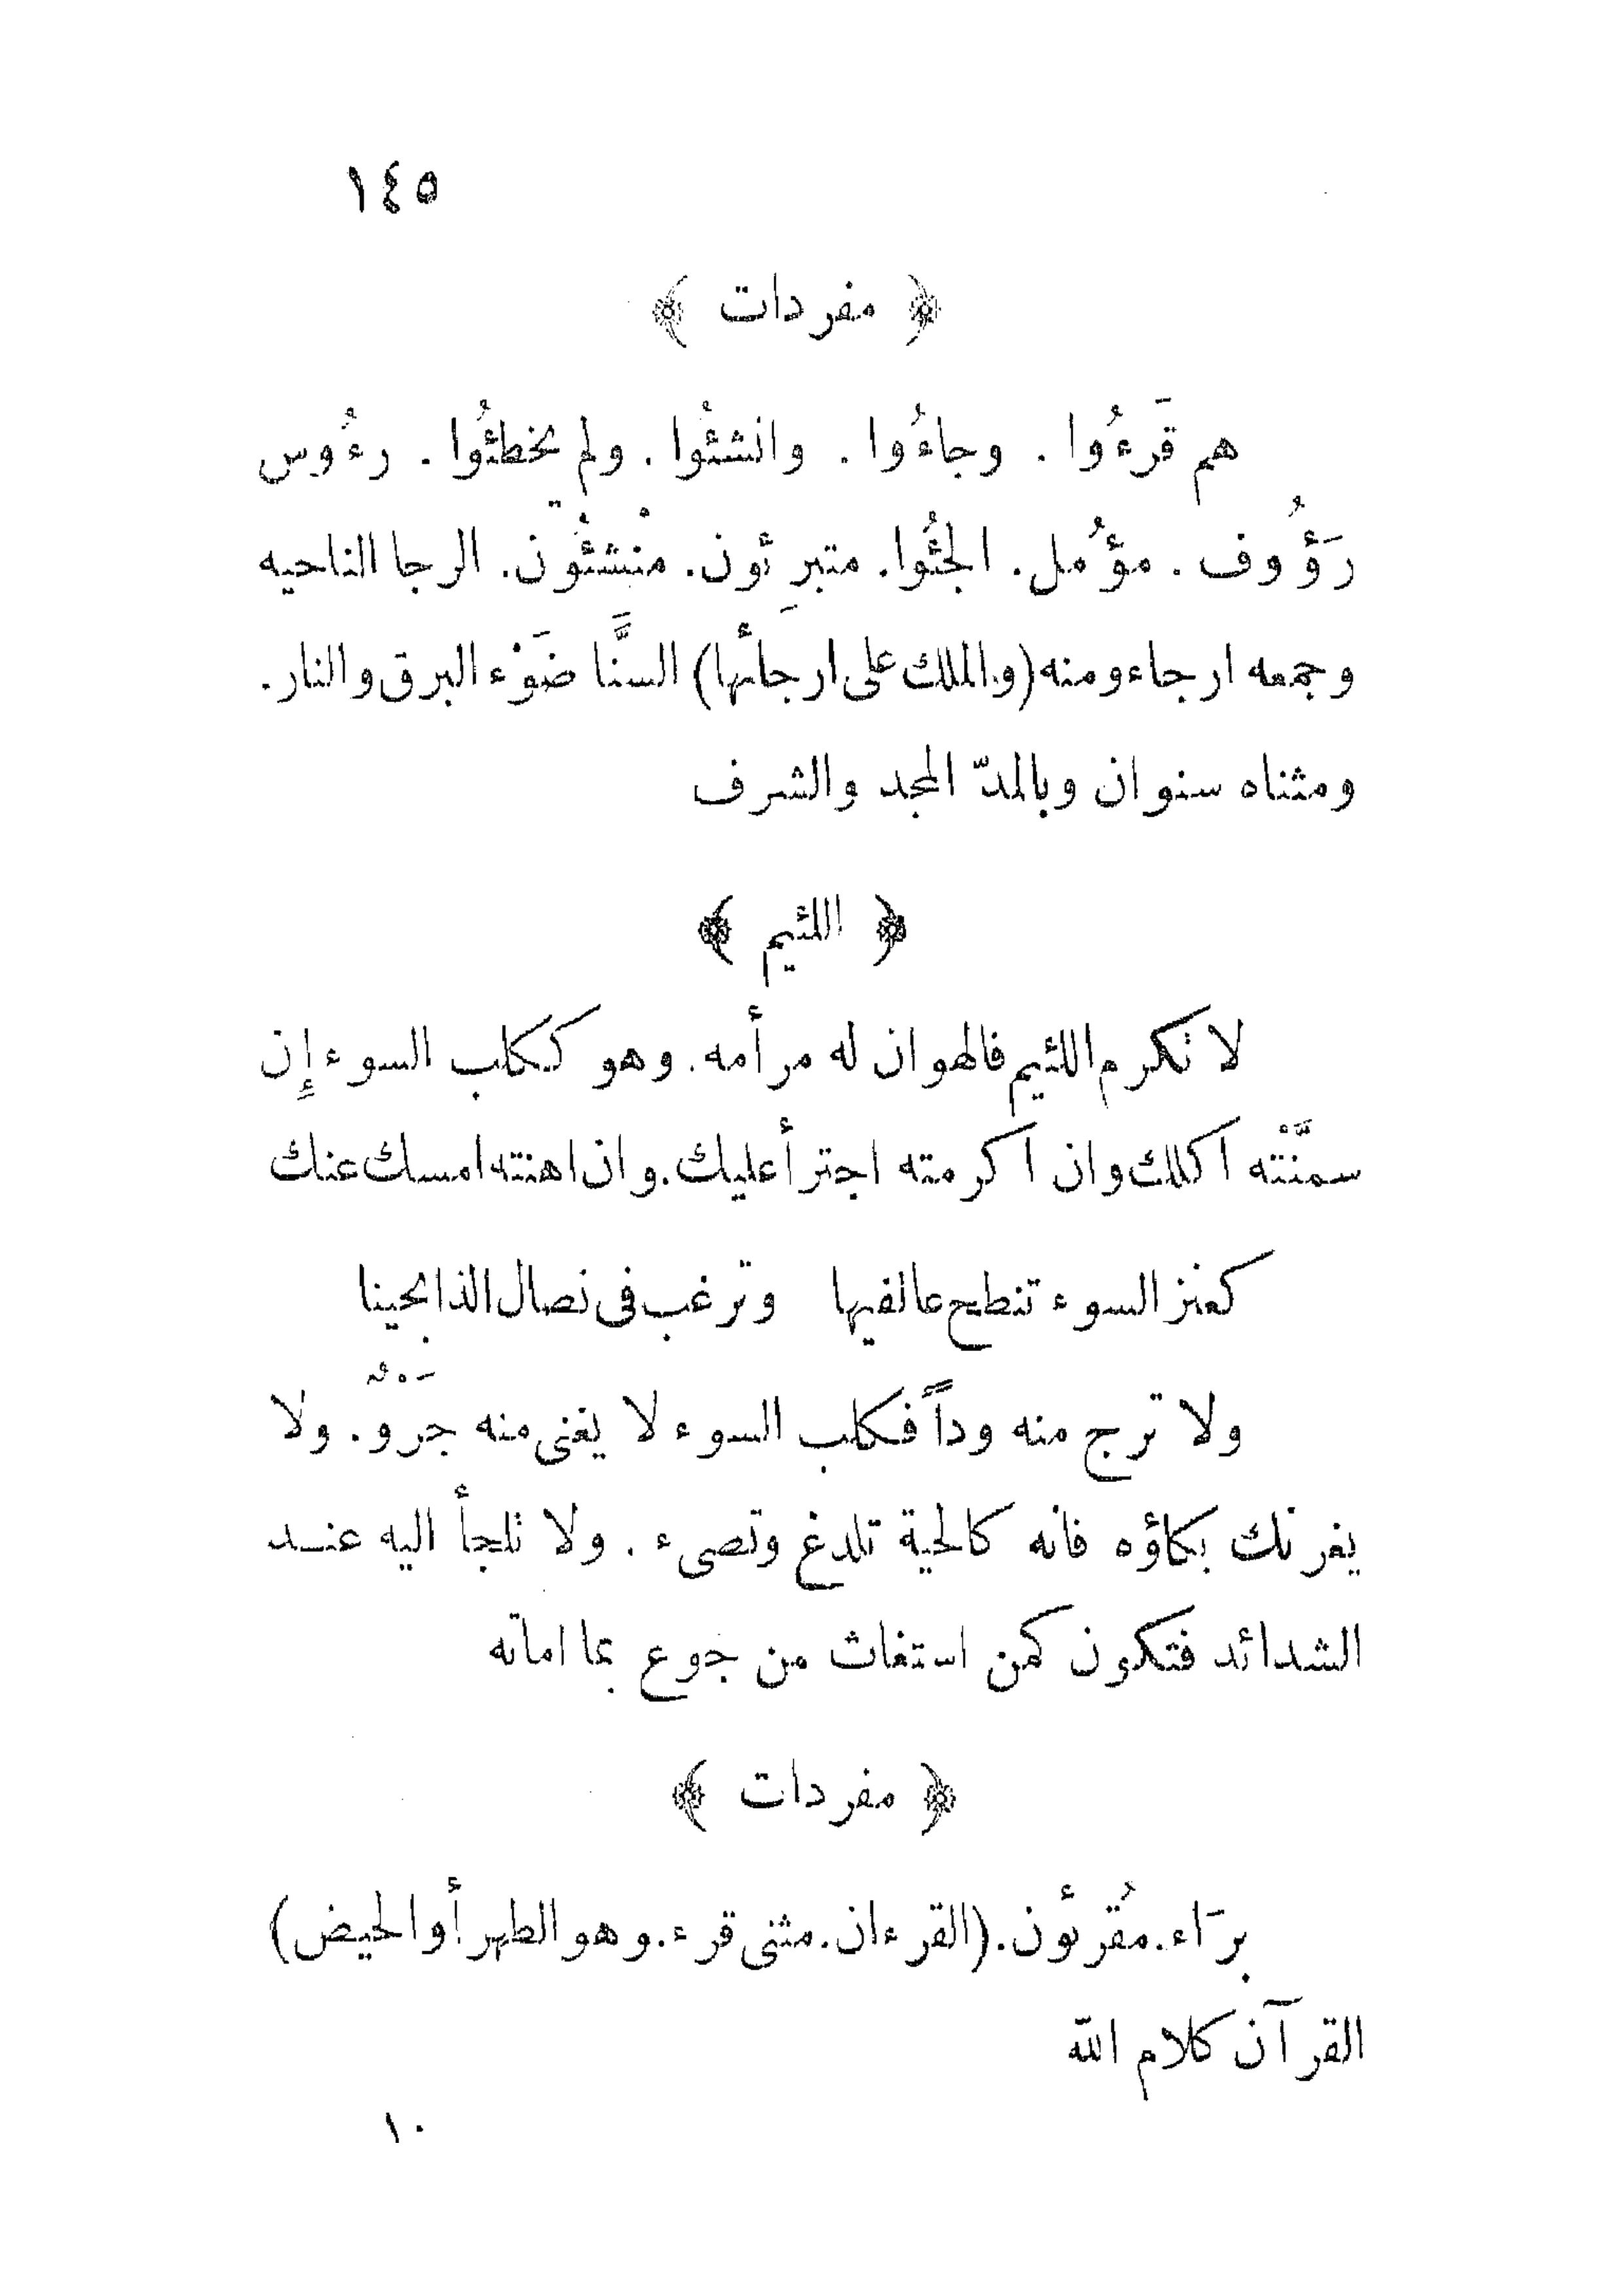 ١٤٥
﴿ مفردات ﴾
هم قَرءُوا . وجاءُوا . وانشئُوا . ولم يخطئُوا . رءُوس
رَؤُوف . مؤُمل . الجئُوا . متبرِئون . منْشئُون . الرجا الناحيه
وجمعه ارجاء ومنه (والملك على ارجائها) السنَّا ضَوْء البرق والنار.
ومثناه سنوان وبالمدّ المجد والشرف
﴿ اللئيم ﴾
لا تكرم اللئيم فالهوان له مرأمه. وهو ككلب السوء إِن
سمنَّته اكلك وان اكرمته اجترأ عليك. وان اهنته امسك عنك
كعنز السوء تنطح عالفيها وترغب فى نصال الذابحينا
ولا ترج منه وداً فكلب السوء لا يغنى منه جَرْوٌ. ولا
يغرنك بكاؤه فانه كالحية تلدغ وتصىء . ولا تلجأ اليه عنـد
الشدائد فتكون كمن استغاث من جوع بما اماته
﴿ مفردات ﴾
برَاء. مُقرئون. (القرءان. مثنى قرء. وهو الطهر أو الحيض)
القرآن كلام الله
١٠